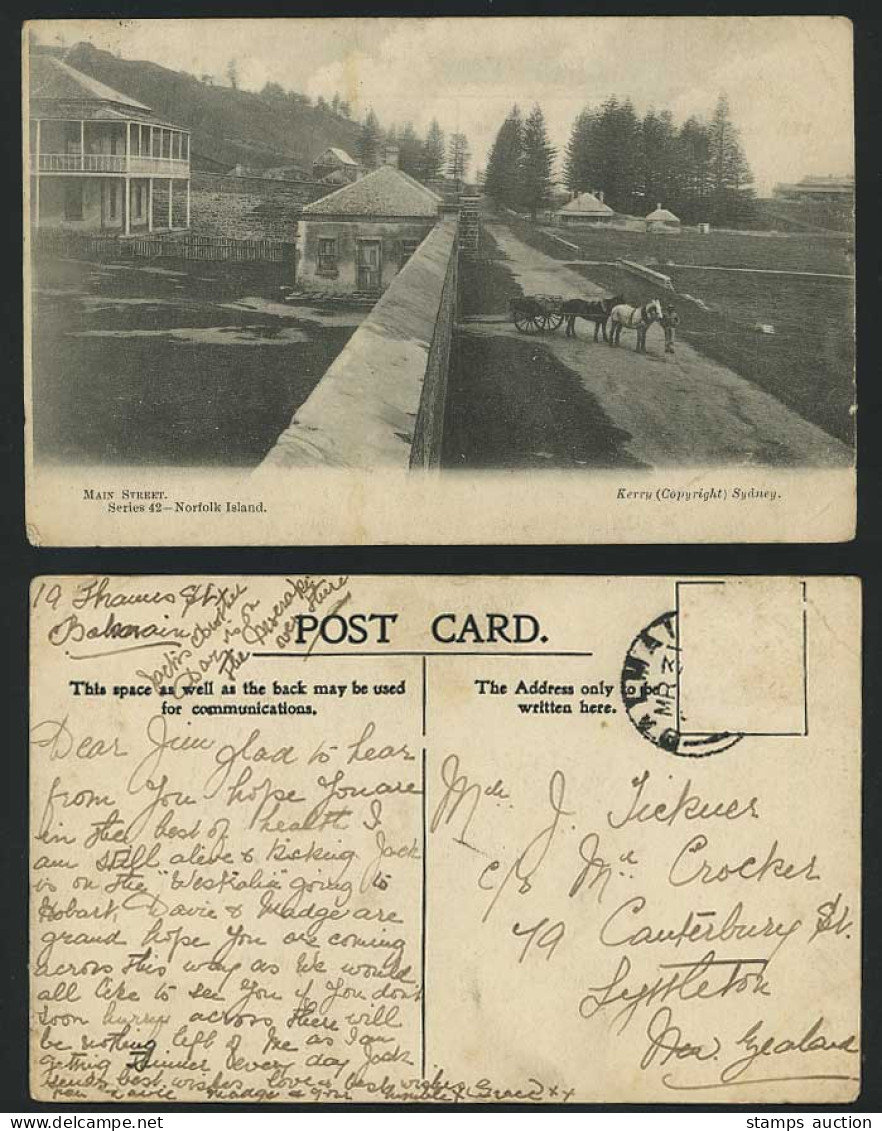 MAIN STREET.
Series 42—Norfolk Island.
Kerry (Copyright) Sydney.
19 Thames St
Balmain
Jack's brother
Dav is on
the
over there
POST CARD.
This space as well as the back may be used
for communications.
The Address only to be
written here.
BALMAT
MR
Dear Jim glad to hear
from You hope You are
in the best of health I
am still alive & kicking Jack
is on the "Westralia" going to
Hobart, Davie & Madge are
grand hope You are coming
across this way as We would
all like to see You if You dont
soon hurry across there will
be nothing left of Me as I am
getting thinner every day Jack
sends best wishes love & best wishes
from Davie Madge & Grace xx
Mr J. Tickner
c/o Mr Crocker
79 Canterbury St.
Lyttleton
New Zealand
stamps auction